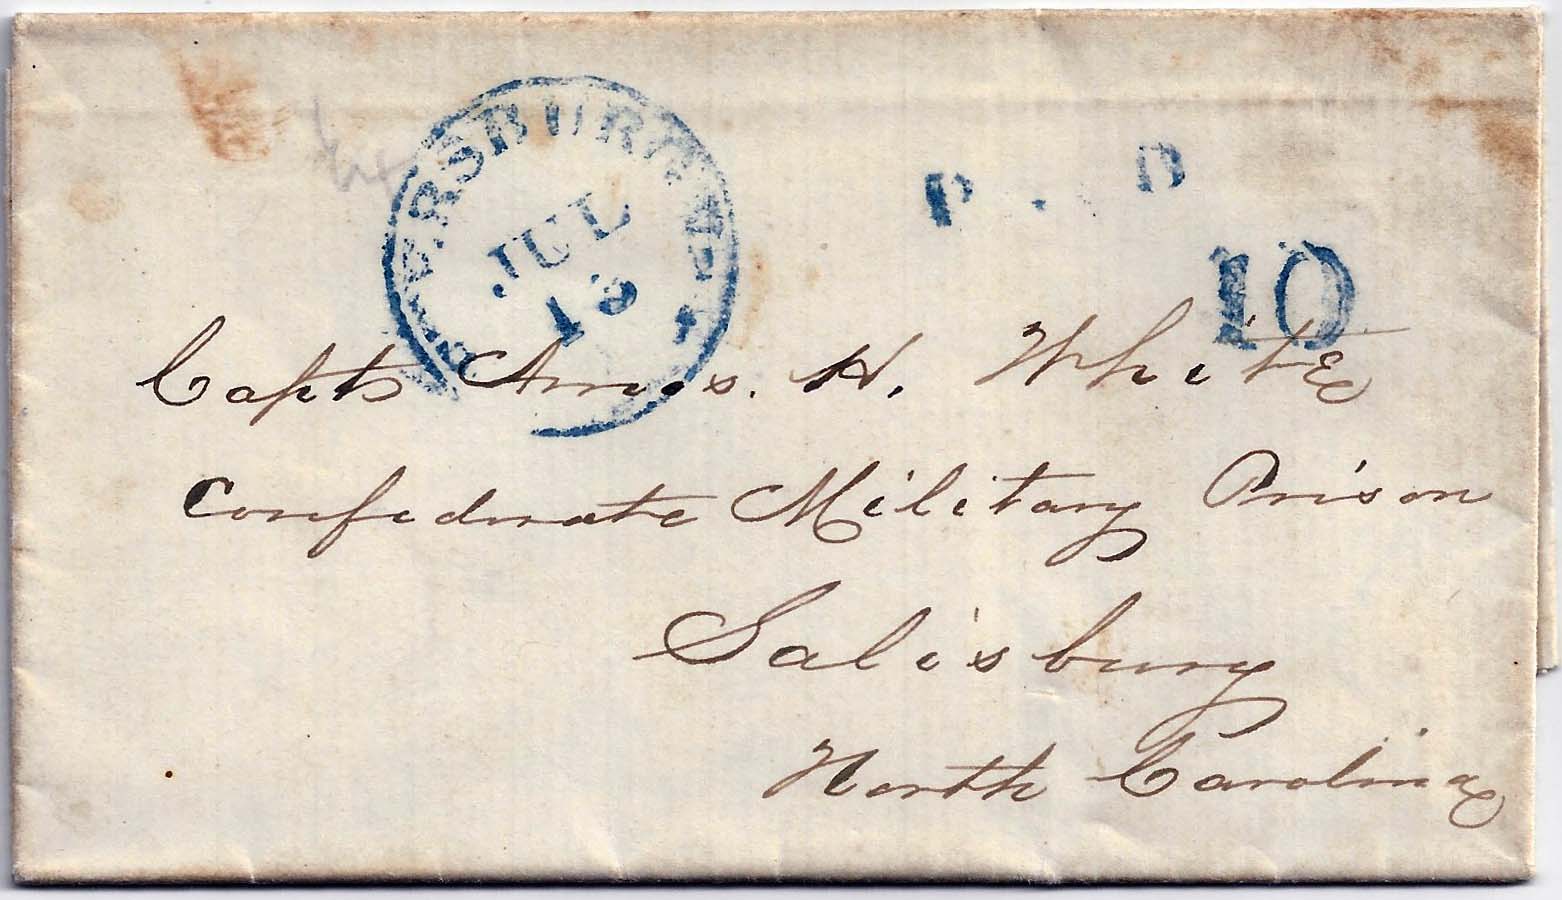 PETERSBURG VA.
JUL
13
P D
10
Capt. Amos. H. White
Confederate Military Prison
Salisbury
North Carolina